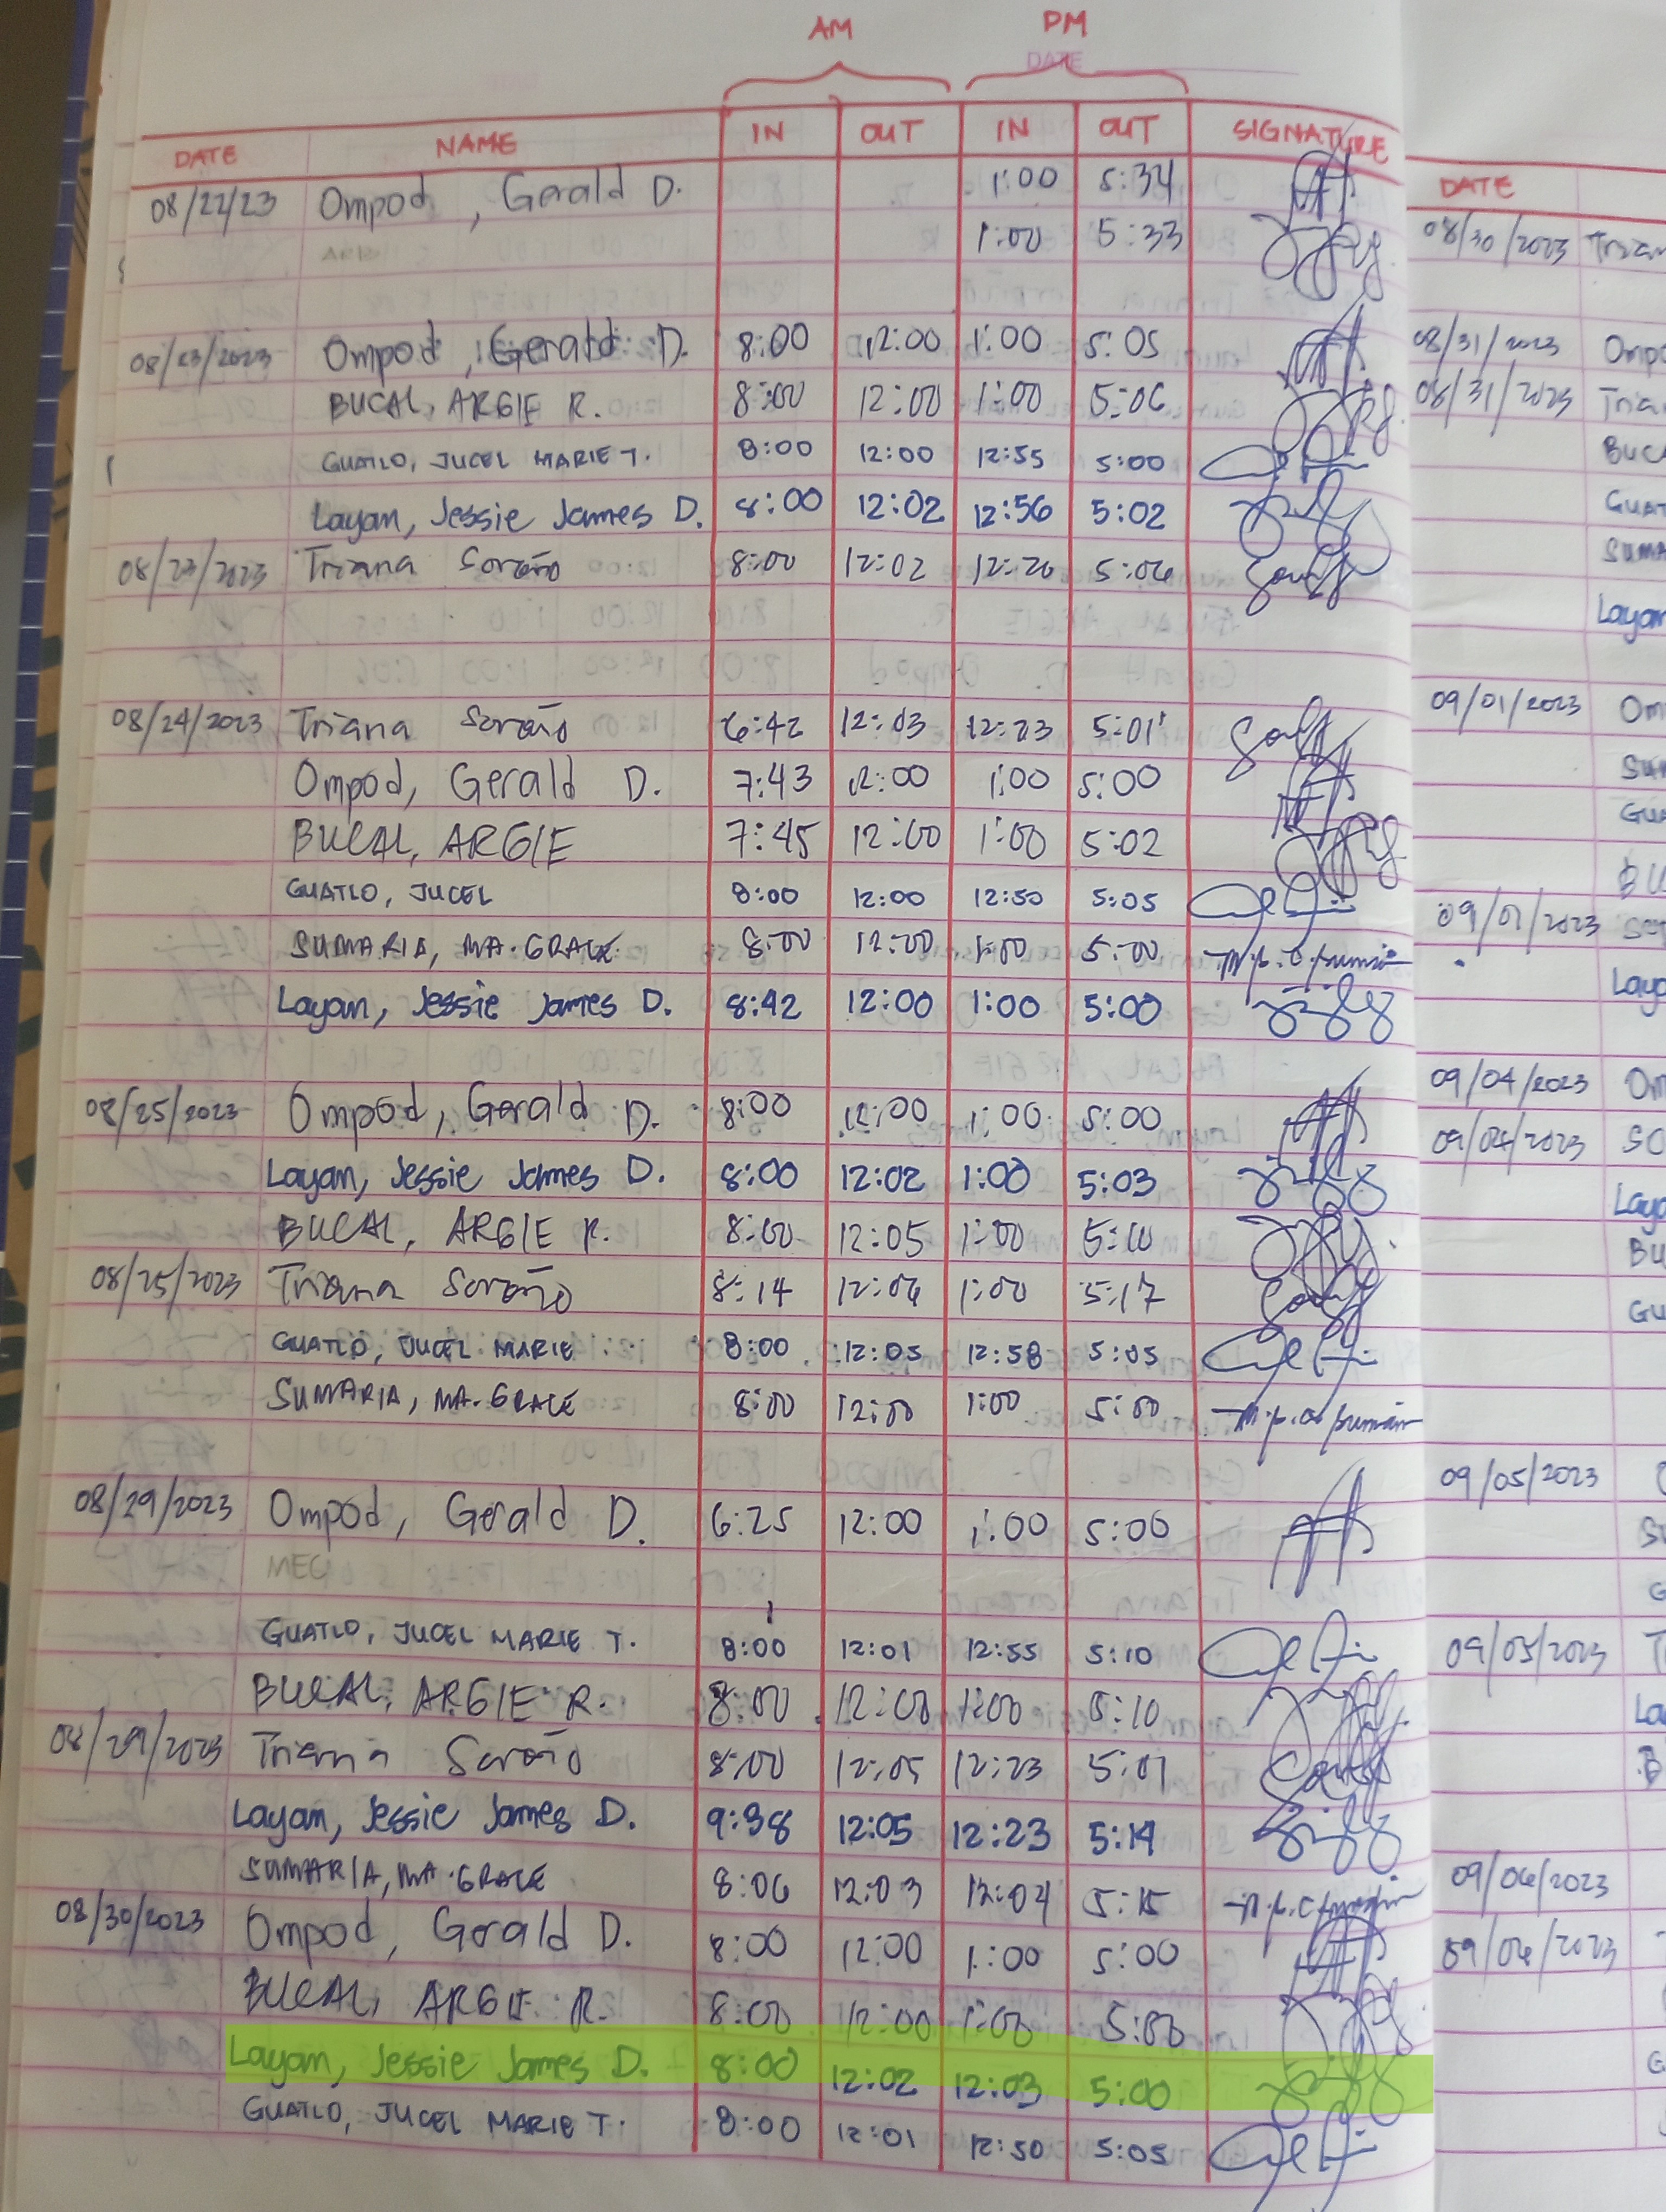 AM PM
DATE
DATE NAME IN OUT IN OUT SIGNATURE
08/22/23 Ompod, Gerald D. 1:00 5:34
1:00 5:33
08/23/2023 Ompod, Gerald D. 8:00 12:00 1:00 5:05
BUCAL, ARGIE R. 8:00 12:00 1:00 5:06
GUATLO, JUCEL MARIE T. 8:00 12:00 12:55 5:00
Layan, Jessie James D. 8:00 12:02 12:56 5:02
08/23/2023 Triana Soreño 8:00 12:02 12:20 5:06
08/24/2023 Triana Soreño 6:42 12:03 12:23 5:01
Ompod, Gerald D. 7:43 12:00 1:00 5:00
BUCAL, ARGIE 7:45 12:00 1:00 5:02
GUATLO, JUCEL 8:00 12:00 12:50 5:05
SUMARIA, MA. GRACE 8:00 12:00 1:00 5:00
Layan, Jessie James D. 8:42 12:00 1:00 5:00
08/25/2023 Ompod, Gerald D. 8:00 12:00 1:00 5:00
Layan, Jessie James D. 8:00 12:02 1:00 5:03
BUCAL, ARGIE R. 8:00 12:05 1:00 5:10
08/25/2023 Triana Soreño 8:14 12:06 1:00 5:17
GUATLO, JUCEL MARIE 8:00 12:05 12:58 5:05
SUMARIA, MA. GRACE 8:00 12:00 1:00 5:00
08/29/2023 Ompod, Gerald D. 6:25 12:00 1:00 5:00
GUATLO, JUCEL MARIE T. 8:00 12:01 12:55 5:10
BUCAL, ARGIE R. 8:00 12:00 1:00 5:10
08/29/2023 Triana Soreño 8:00 12:05 12:23 5:01
Layan, Jessie James D. 9:38 12:05 12:23 5:14
SUMARIA, MA. GRACE 8:06 12:03 12:04 5:15
08/30/2023 Ompod, Gerald D. 8:00 12:00 1:00 5:00
BUCAL, ARGIE R. 8:00 12:00 1:00 5:00
Layan, Jessie James D. 8:00 12:02 12:03 5:00
GUATLO, JUCEL MARIE T. 8:00 12:01 12:50 5:05
DATE
08/30/2023
08/31/2023
08/31/2023
Layan
09/01/2023
09/01/2023
09/04/2023
09/04/2023
09/05/2023
09/05/2023
09/06/2023
09/06/2023